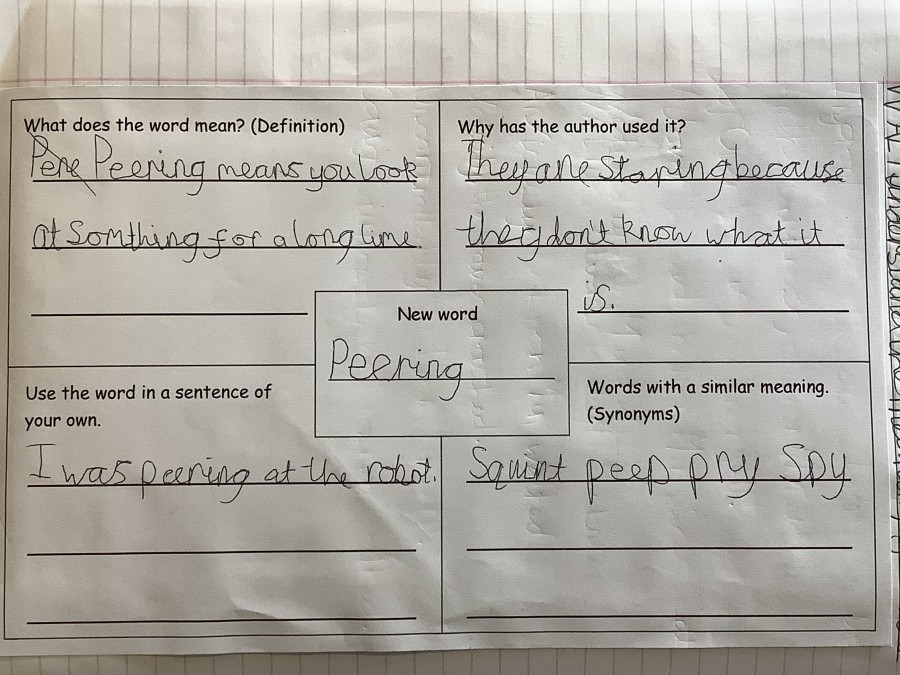 What does the word mean? (Definition)
Pere Peering means you look
at Somthing for a long time.
Why has the author used it?
They are Staring because
they don't know what it
is.
New word
Peering
Use the word in a sentence of
your own.
I was peering at the robot.
Words with a similar meaning.
(Synonyms)
Squint peep pry Spy